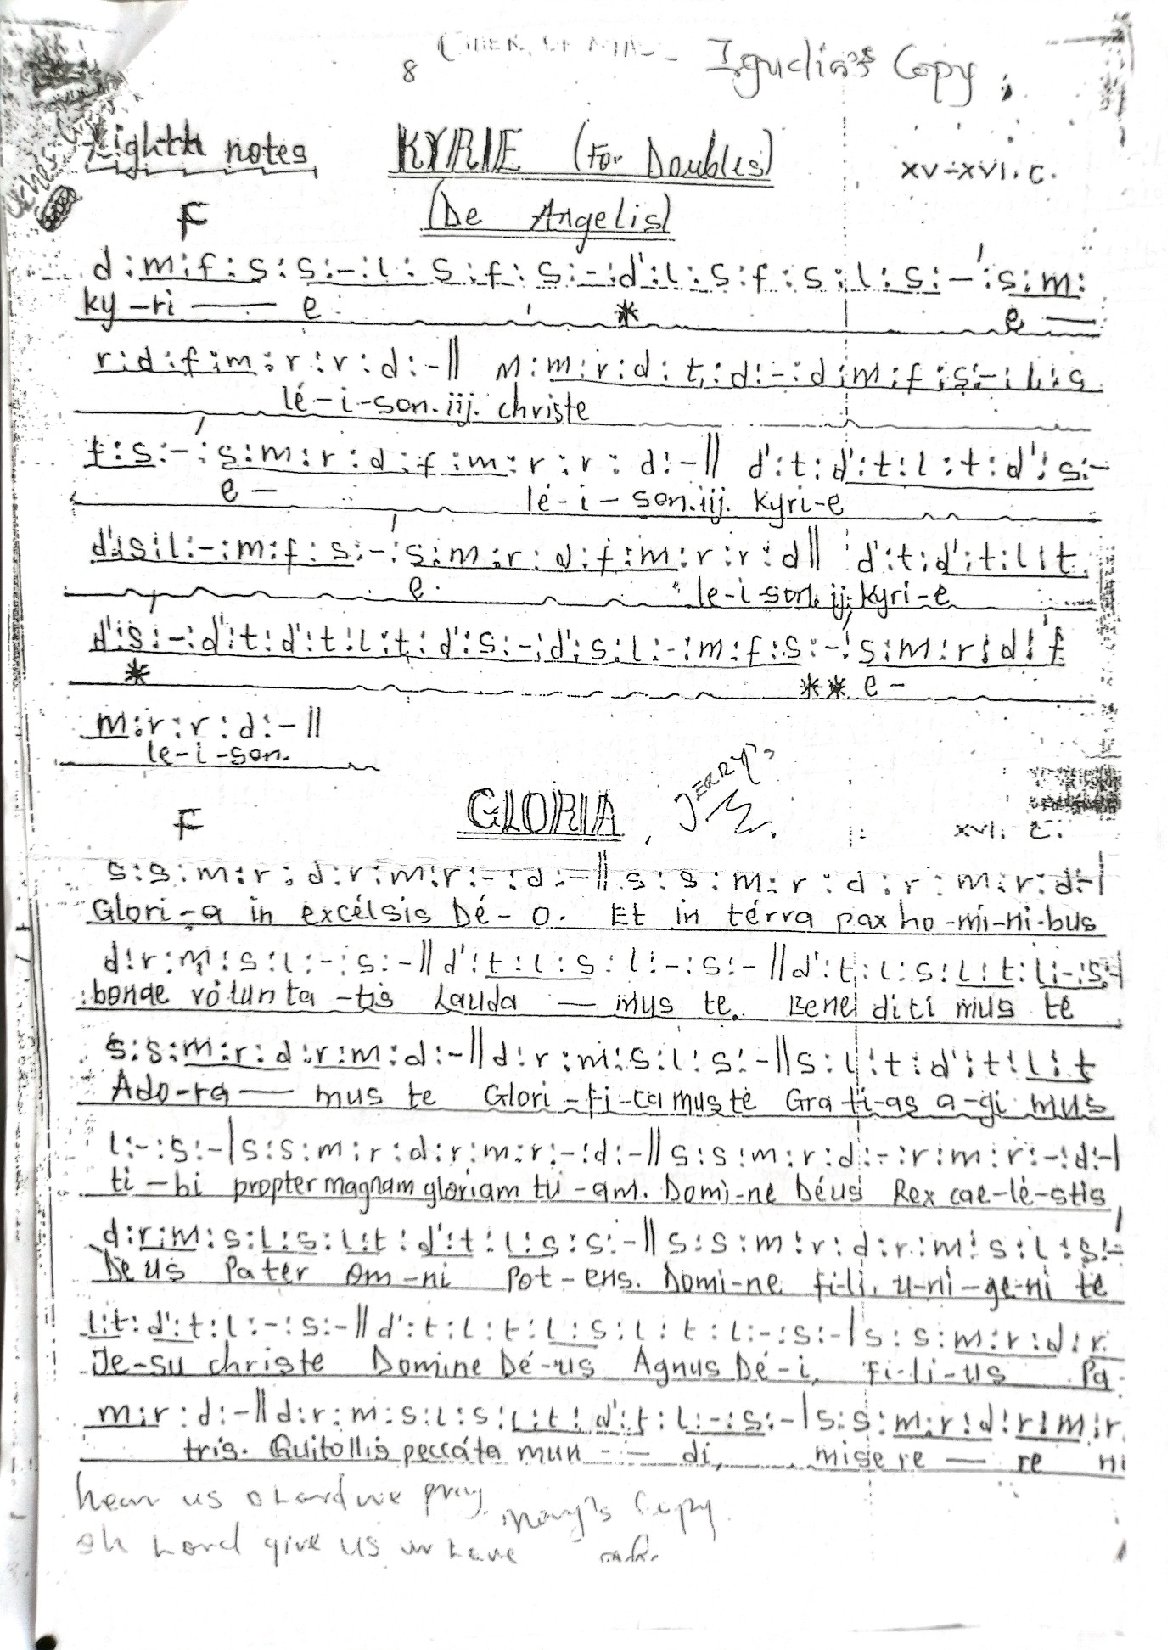 8 Igudia's Copy
Eighth notes KYRIE (For Doubles) XV-XVI. C.
F (De Angelis)
d:m:f:s:s:-:l:s:f:s:-:d':l:s:f:s:l:s:-':s:m:
ky-ri — e * e —
r:d:f:m:r:r:d:-|| m:m:r:d:t,:d:-:d:m:f:s:-:l:s
lé-i-son.iij. christe
f:s:-':s:m:r:d:f:m:r:r:d:-|| d':t:d':t:l:t:d':s:-
e - lé-i-son.iij. kyri-e
d':s:l:-:m:f:s:-':s:m:r:d:f:m:r:r:d|| d':t:d':t:l:t
e- le-i-son. ij. kyri-e
d':s:-:d':t:d':t:l:t:d':s:-:d':s:l:-:m:f:s:-':s:m:r:d:f
* ** e-
m:r:r:d:-||
le-i-son.
F GLORIA JERRY's XVI. C.
s:s:m:r:d:r:m:r:-:d:-|| s:s:m:r:d:r:m:r:d:-|
Glori-a in excélsis Dé-o. Et in térra pax ho-mi-ni-bus
d:r:m:s:l:-:s:-|| d':t:l:s:l:-:s:-|| d':t:l:s:l:t:l:-:s:-|
bonae volunta-tis Lauda — mus te. Bene dici mus te
s:s:m:r:d:r:m:d:-|| d:r:m:s:l:s:-|| s:l:t:d':t:l:t
Ado-ra — mus te Glori-fi-camus te Grati-as a-gi mus
l:-:s:-| s:s:m:r:d:r:m:r:-:d:-|| s:s:m:r:d:-:r:m:r:-:d:-|
ti-bi propter magnam gloriam tu-am. Domi-ne Déus Rex cae-lé-stis
d:r:m:s:l:s:l:t:d':t:l:s:s:-|| s:s:m:r:d:r:m:s:l:s:-
De us Pater om-ni pot-ens. Domi-ne fi-li. u-ni-ge-ni te
l:t:d':t:l:-:s:-|| d':t:l:t:l:s:l:t:l:-:s:-| s:s:m:r:d:r
Je-su christe Domine Dé-us Agnus Dé-i, Fi-li-us Pa
m:r:d:-|| d:r:m:s:l:s:l:t:d':t:l:-:s:-| s:s:m:r:d:r:m:r
tris. Quitollis peccáta mun - - di, misere — re ni
hear us o Lord we pray Mary's Copy
oh Lord give us